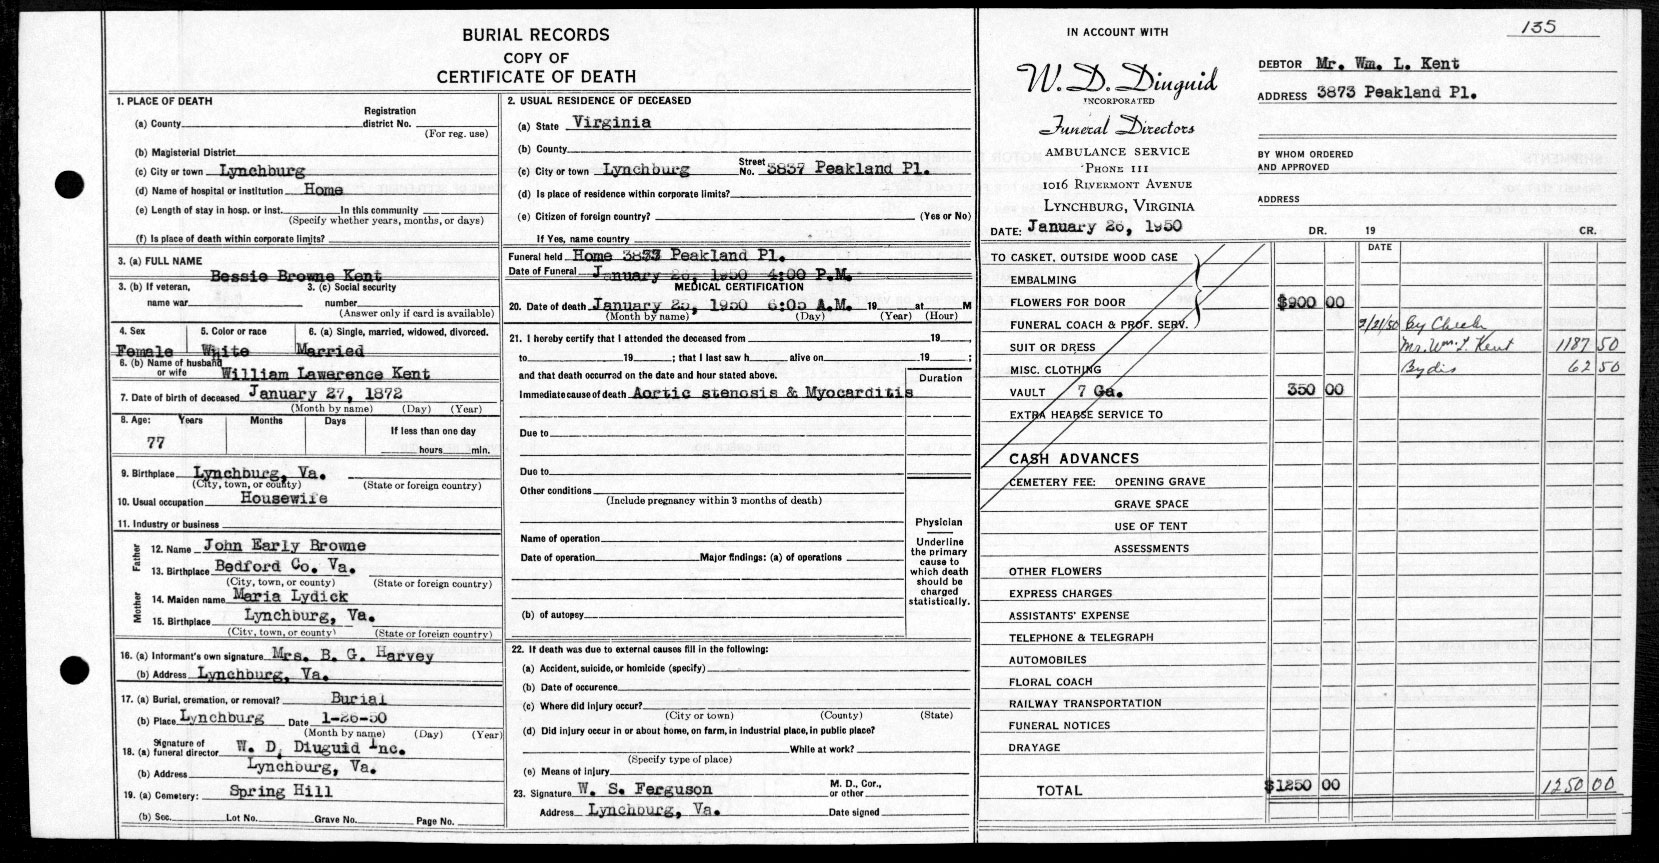 BURIAL RECORDS
COPY OF
CERTIFICATE OF DEATH
1. PLACE OF DEATH
(a) County
Registration district No.
(For reg. use)
(b) Magisterial District
(c) City or town Lynchburg
(d) Name of hospital or institution Home
(e) Length of stay in hosp. or inst. In this community
(Specify whether years, months, or days)
(f) Is place of death within corporate limits?
3. (a) FULL NAME
Bessie Browne Kent
3. (b) If veteran, name war
3. (c) Social security number
(Answer only if card is available)
4. Sex 5. Color or race 6. (a) Single, married, widowed, divorced.
Female White Married
6. (b) Name of husband or wife William Lawarence Kent
7. Date of birth of deceased January 27, 1872
(Month by name) (Day) (Year)
8. Age: Years Months Days If less than one day
77
hours min.
9. Birthplace Lynchburg, Va.
(City, town, or county) (State or foreign country)
10. Usual occupation Housewife
11. Industry or business
Father
12. Name John Early Browne
13. Birthplace Bedford Co. Va.
(City, town, or county) (State or foreign country)
Mother
14. Maiden name Maria Lydick
15. Birthplace Lynchburg, Va.
(City, town, or county) (State or foreign country)
16. (a) Informant's own signature Mrs. B. G. Harvey
(b) Address Lynchburg, Va.
17. (a) Burial, cremation, or removal? Burial
(b) Place Lynchburg Date 1-26-50
(Month by name) (Day) (Year)
18. (a) Signature of funeral director W. D. Diuguid Inc.
(b) Address Lynchburg, Va.
19. (a) Cemetery: Spring Hill
(b) Sec. Lot No. Grave No. Page No.
2. USUAL RESIDENCE OF DECEASED
(a) State Virginia
(b) County
(c) City or town Lynchburg Street No. 3837 Peakland Pl.
(d) Is place of residence within corporate limits?
(e) Citizen of foreign country? (Yes or No)
If Yes, name country
Funeral held Home Peakland Pl.
Date of Funeral January 26, 1950 4:00 P.M.
MEDICAL CERTIFICATION
20. Date of death January 25, 1950 6:05 A.M. 19 at M
(Month by name) (Day) (Year) (Hour)
21. I hereby certify that I attended the deceased from 19 ,
to 19 ; that I last saw h alive on 19 ;
and that death occurred on the date and hour stated above.
Duration
Immediate cause of death Aortic stenosis & Myocarditis
Due to
Due to
Other conditions
(Include pregnancy within 3 months of death)
Physician
Underline the primary cause to which death should be charged statistically.
Name of operation
Date of operation Major findings: (a) of operations
(b) of autopsy
22. If death was due to external causes fill in the following:
(a) Accident, suicide, or homicide (specify)
(b) Date of occurence
(c) Where did injury occur?
(City or town) (County) (State)
(d) Did injury occur in or about home, on farm, in industrial place, in public place?
While at work?
(Specify type of place)
(e) Means of injury
23. Signature W. S. Ferguson M. D., Cor., or other
Address Lynchburg, Va. Date signed
135
IN ACCOUNT WITH
W. D. Diuguid
INCORPORATED
Funeral Directors
AMBULANCE SERVICE
'PHONE 111
1016 RIVERMONT AVENUE
LYNCHBURG, VIRGINIA
DATE: January 26, 1950
DEBTOR Mr. Wm. L. Kent
ADDRESS 3873 Peakland Pl.
BY WHOM ORDERED AND APPROVED
ADDRESS
DR. 19 CR.
DATE
TO CASKET, OUTSIDE WOOD CASE
EMBALMING
FLOWERS FOR DOOR $900 00
FUNERAL COACH & PROF. SERV. 2/21/50 By Check
SUIT OR DRESS Mr. Wm. L. Kent 1187 50
MISC. CLOTHING By dis 62 50
VAULT 7 Ga. 350 00
EXTRA HEARSE SERVICE TO
CASH ADVANCES
CEMETERY FEE: OPENING GRAVE
GRAVE SPACE
USE OF TENT
ASSESSMENTS
OTHER FLOWERS
EXPRESS CHARGES
ASSISTANTS' EXPENSE
TELEPHONE & TELEGRAPH
AUTOMOBILES
FLORAL COACH
RAILWAY TRANSPORTATION
FUNERAL NOTICES
DRAYAGE
TOTAL $1250 00 1250 00